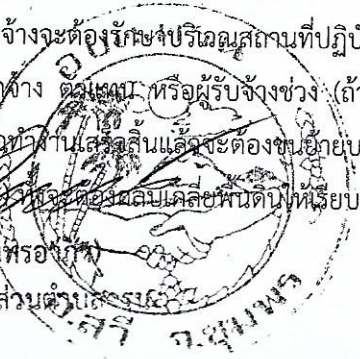 จ้างจะต้องรักษาบริเวณสถานที่ปฏิบั
จ้าง ตัวแทน หรือผู้รับจ้างช่วง (ถ้า
ทำงานเสร็จสิ้นแล้วจะต้องขนย้ายบ
จะต้องกลบเกลี่ยพื้นดินให้เรียบ
ส่วนตำบล
จ.ชุมพร